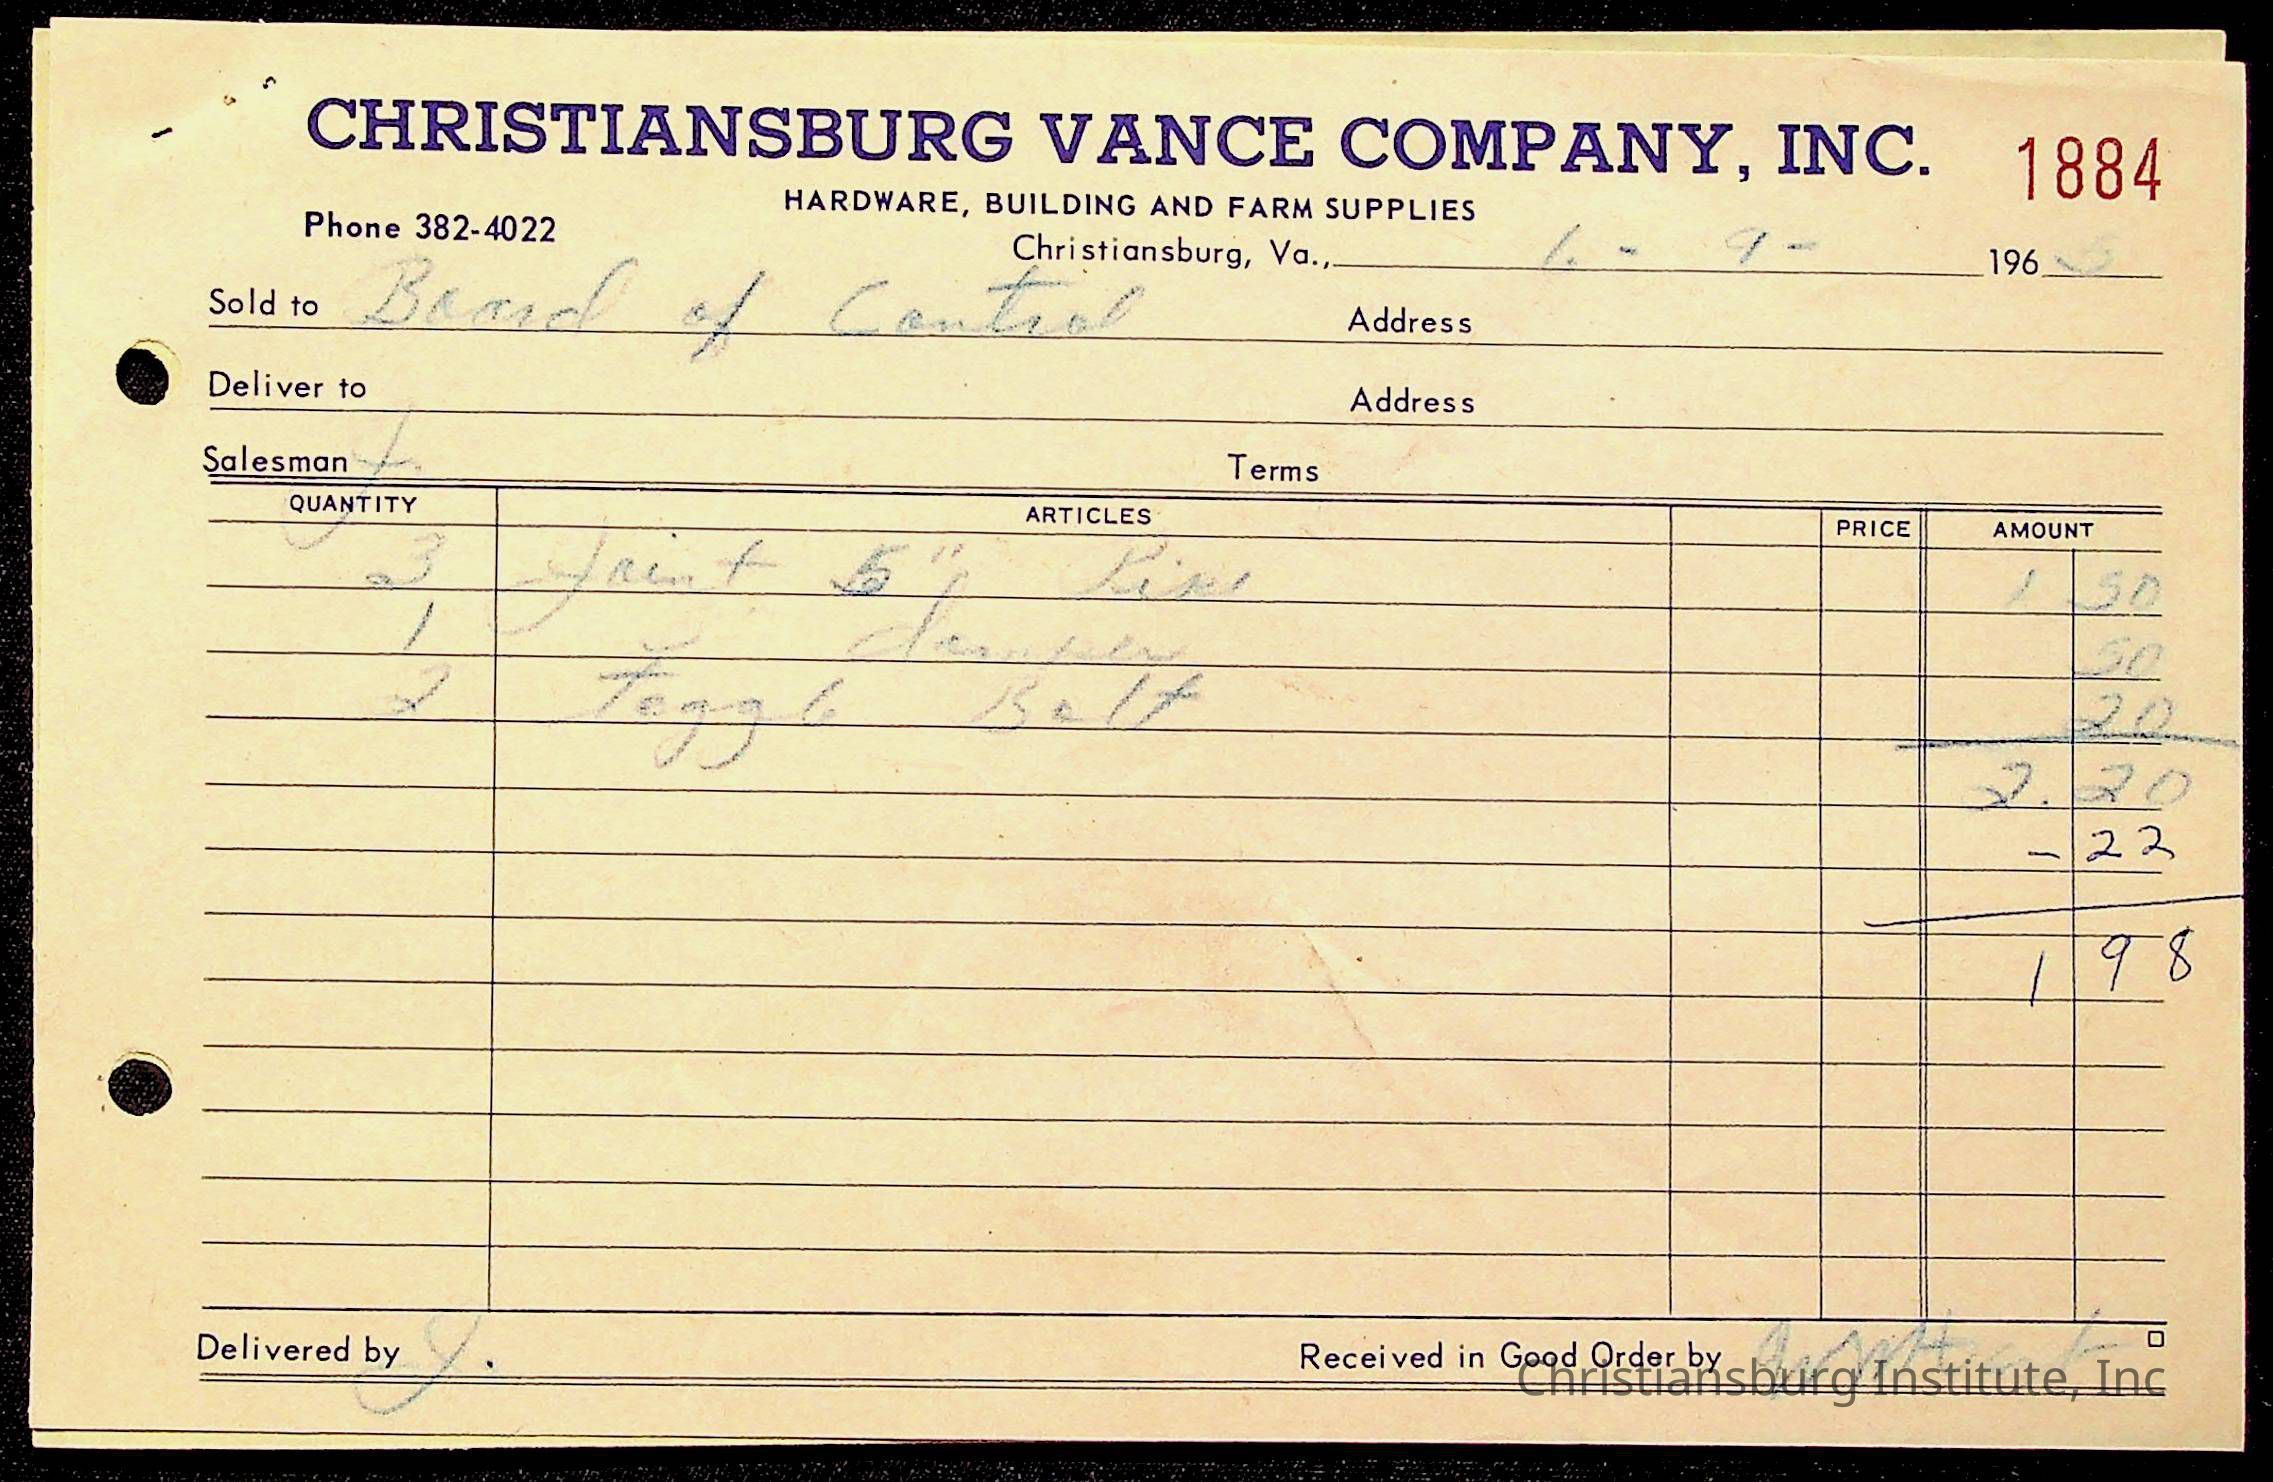 CHRISTIANSBURG VANCE COMPANY, INC. 1884
HARDWARE, BUILDING AND FARM SUPPLIES
Phone 382-4022
Christiansburg, Va., 6 - 9 - 1965
Sold to Board of Control Address
Deliver to Address
Salesman J. Terms
QUANTITY ARTICLES PRICE AMOUNT
3 Joint 5" Pipe 1 50
1 " damper 50
2 Toggle Bolt 20
2.20
- 22
1 98
Delivered by J. Received in Good Order by
Christiansburg Institute, Inc